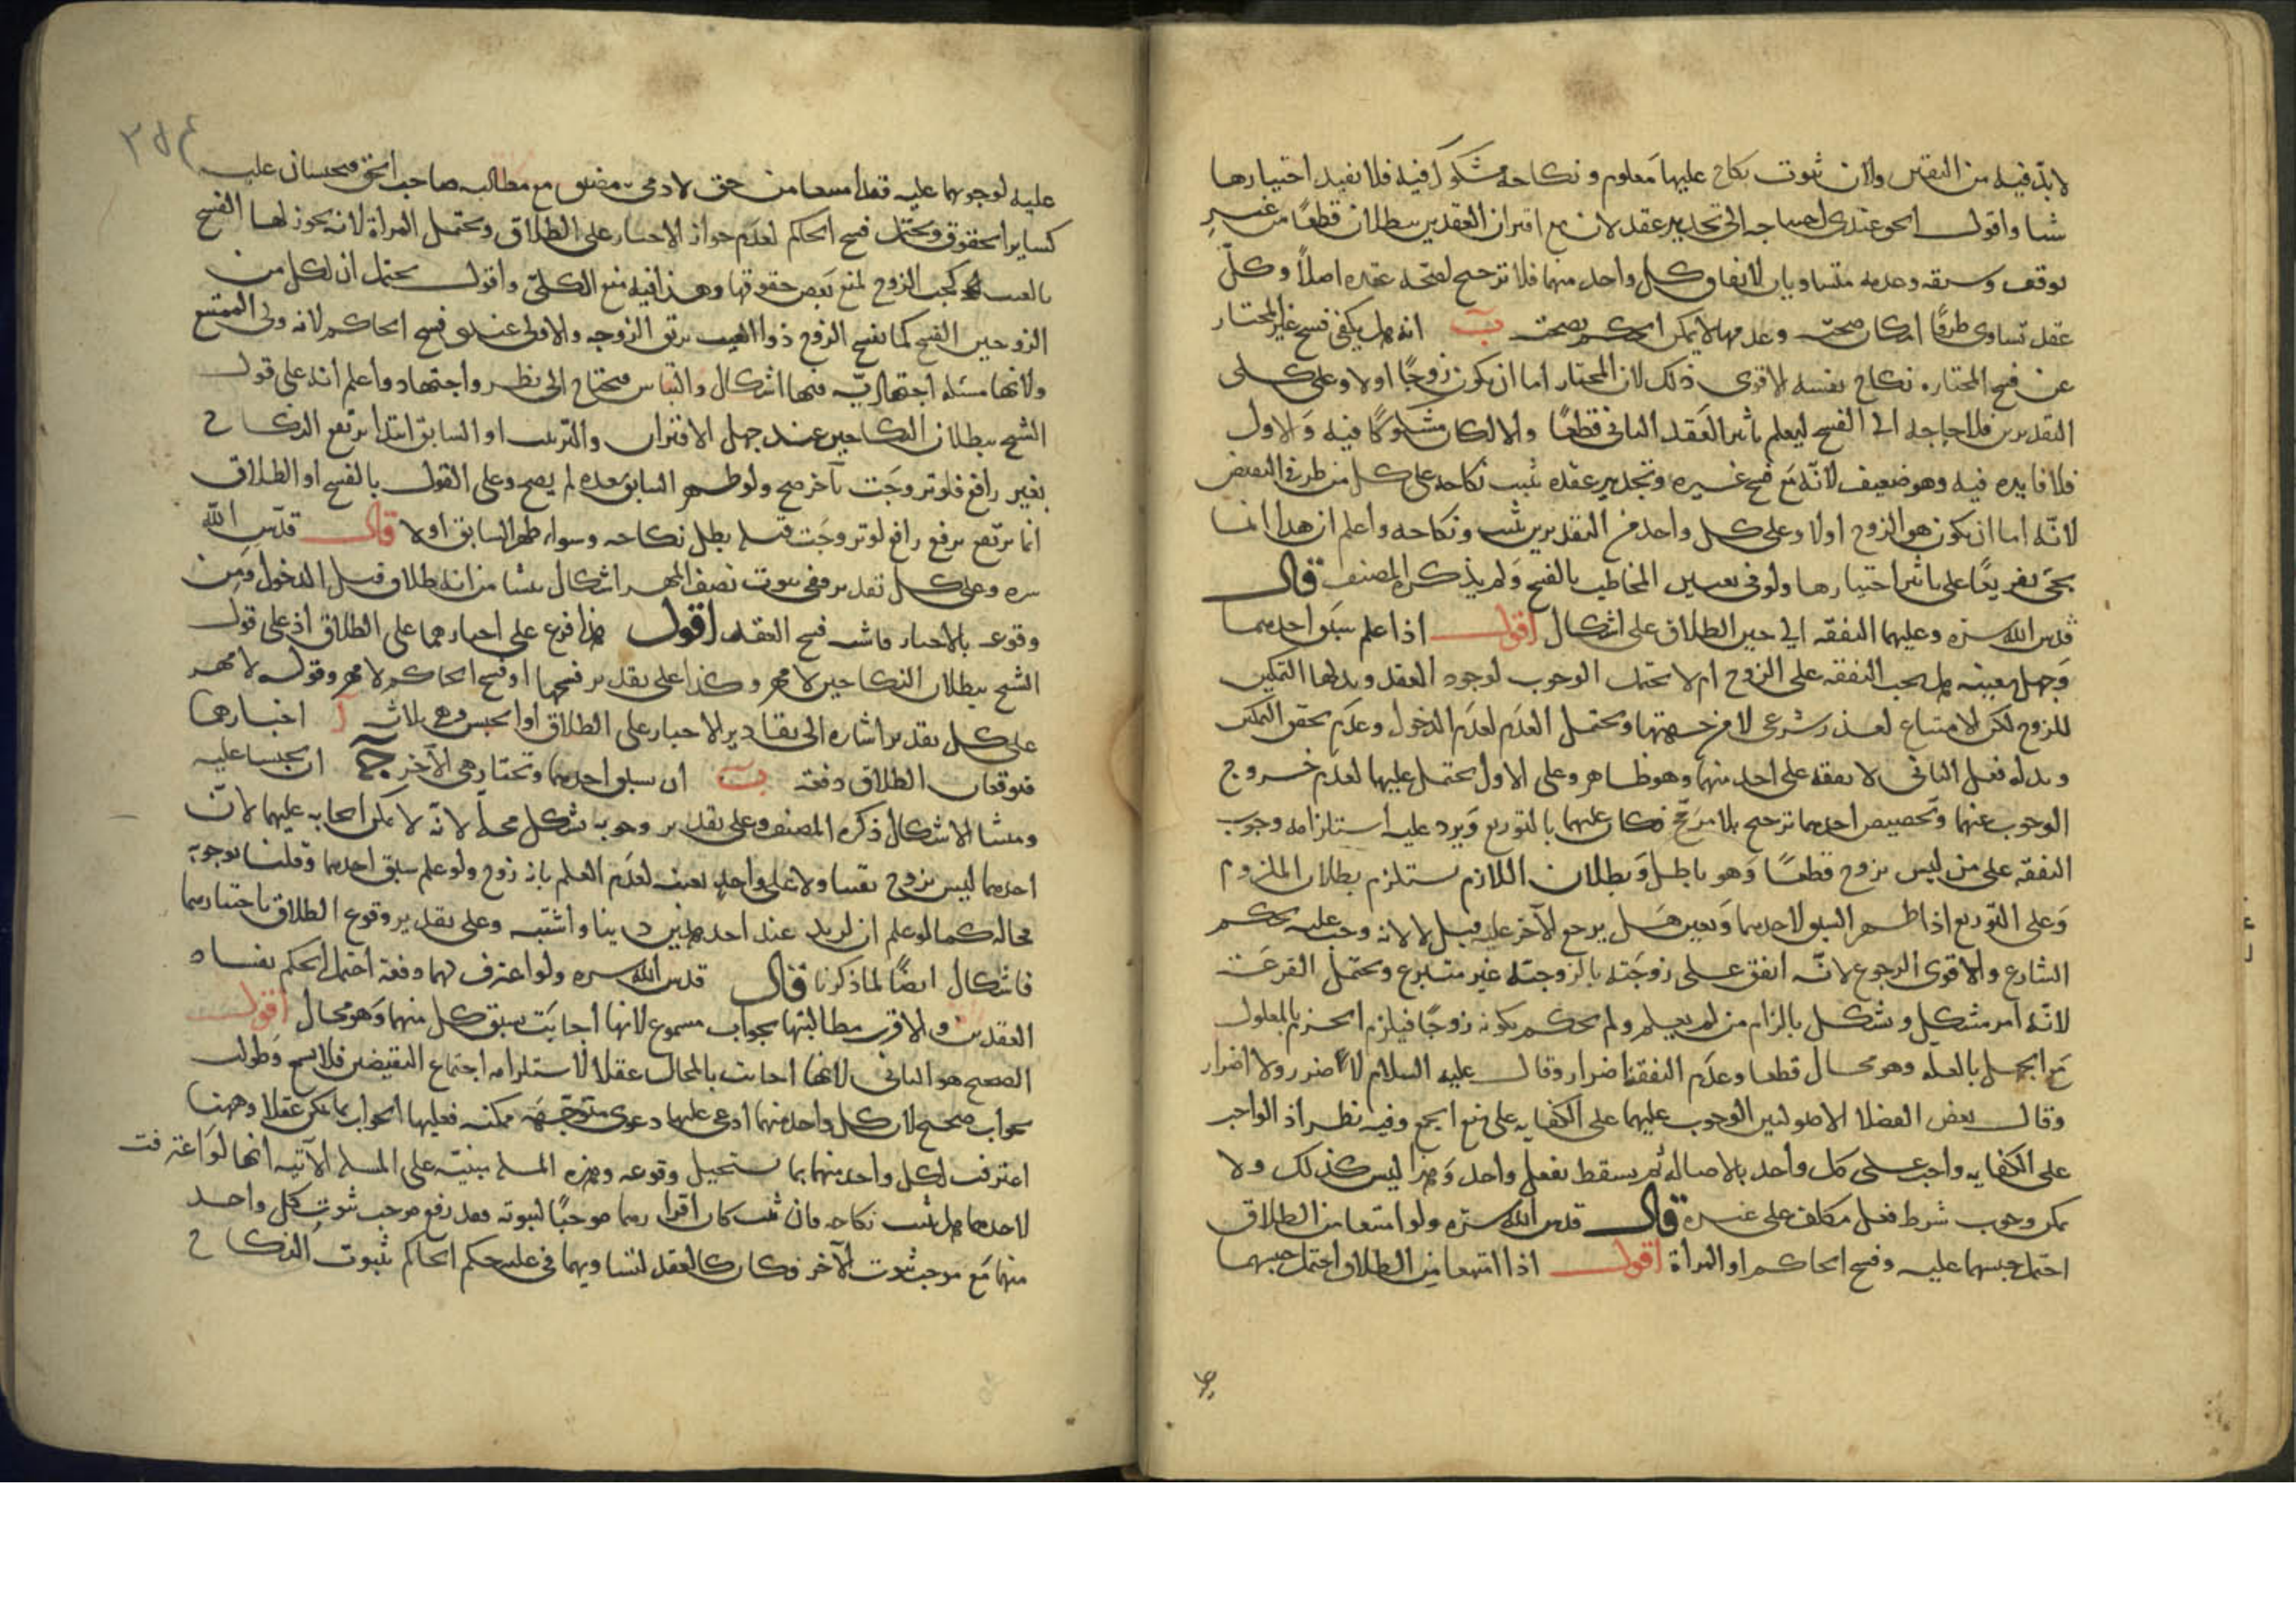 لا بد فيه من اليقين ولان ثبوت نكاح عليها معلوم ونكاحه مشكوك فيه فلا يفيد اختيارها
شيا واقول الحق عندي احتياجه الى تجديد عقد لان مع اقتران العقدين يبطلان قطعا من غير
توقف وسبقه وعدمه متساويان لاتفاق كل واحد منهما فلا ترجيح لصحة عقده اصلا وكل
عقد تساوى طرفا امكان صحته وعدمها لا يمكن الحكم بصحته ب انه هل يكفي فسخ غير المختار
عن فسخ المختار نكاح نفسه الاقوى ذلك لان المختار اما ان يكون زوجا اولا وعلى كلى
التقديرين فلا حاجة الى الفسخ ليعلم تاثير العقد الثاني قطعا والا لكان مشكوكا فيه والاول
فلا فايدة فيه وهو ضعيف لانه مع فسخ غيره وتجديد عقده يثبت نكاحه على كل من طرفي النقيض
لانه اما ان يكون هو الزوج اولا وعلى كل واحد من التقديرين يثبت نكاحه واعلم ان هذا انما
يجئ تفريعا على تاثير اختيارها ولو في تعيين المخاطب بالفسخ ولم يذكره المصنف قال
قدس الله سره وعليهما النفقة الى حين الطلاق على اشكال اقول اذا علم سبق احدهما
وجهل بعينه هل يجب النفقة على الزوج ام لا يحتمل الوجوب لوجود العقد وبذلها التمكين
للزوج لكن الامتناع لعذر شرعي لا من جهتها ويحتمل العدم لعدم الدخول وعدم تحقق التمكين
وبذله فعلى الثاني لا نفقة على احد منهما وهو ظاهر وعلى الاول يحتمل عليهما لعدم خروج
الوجوب عنهما وتخصيص احدهما ترجيح بلا مرجح فكان عليهما بالتوزيع ويرد عليه استلزامه وجوب
النفقة على من ليس بزوج قطعا وهو باطل وبطلان اللازم يستلزم بطلان الملزوم
وعلى التوزيع اذا ظهر السبق لاحدهما وتعين هل يرجع الآخر عليه قيل لا لانه وجب عليه بحكم
الشارع والاقوى الرجوع لانه انفق على زوجته بالزوجية غير متبرع ويحتمل القرعة
لانه امر مشكل ويشكل بالزام من لم يعلم ولم يحكم بكونه زوجا فيلزم الجزم بالمعلول
مع الجهل بالعلة وهو محال قطعا وعدم النفقة اضرار وقال عليه السلام لا ضرر ولا اضرار
وقال بعض الفضلا الاصوليين الوجوب عليهما على الكفاية على منع الجمع وفيه نظر اذ الواجب
على الكفاية واجب على كل واحد بالاصالة ثم يسقط بفعل واحد وهذا ليس كذلك ولا
يمكن وجوب شرط فعل مكلف على غيره قال قدس الله سره ولو امتنعا من الطلاق
احتمل حبسهما عليه وفسخ الحاكم او المراة اقول اذا امتنعا من الطلاق احتمل حبسهما
عليه لوجوبهما عليه فقد امتنعا من حق لادمي مضيق مع مطالبة صاحب الحق فيحبسان عليه
كساير الحقوق ويحتمل فسخ الحاكم لعدم جواز الاجبار على الطلاق ويحتمل المراة لانه يجوز لها الفسخ
بالعيب كجب الزوج لمنع بعض حقوقها وهذا فيه منع الكلي واقول يحتمل ان لكل من
الزوجين الفسخ كما يفسخ الزوج ذوا العيب برتق الزوجة والاولى عندي فسخ الحاكم لانه ولي الممتنع
ولانها مسئلة اجتهادية فيها اشكال والتباس فيحتاج الى نظر واجتهاد واعلم انه على قول
الشيخ ببطلان النكاحين عند جهل الاقتران والترتيب او السابق ابتدا يرتفع النكاح
بغير رافع فلو تزوجت بآخر صح ولو ظهر السابق بعده لم يصح وعلى القول بالفسخ او الطلاق
انما يرتفع برفع رافع لو تزوجت قبله بطل نكاحه وسواء ظهر السابق اولا قال قدس الله
سره وعلى كل تقدير ففي ثبوت نصف المهر اشكال ينشا من انه طلاق قبل الدخول ومن
وقوعه بالاجبار فاشبه فسخ العقد اقول هذا فرع على اجبارهما على الطلاق اذ على قول
الشيخ ببطلان النكاحين لا مهر وكذا على تقدير فسخها او فسخ الحاكم لا مهر وقوله لا مهر
على كل تقدير اشارة الى تقادير الاجبار على الطلاق او الحبس وهي ثلاثة ا اجبارهما
فيوقعان الطلاق دفعة ب ان يطلق احدهما وتختار هي الآخر ج ان يحبسا عليه
ومنشا الاشكال ذكره المصنف وعلى تقدير وجوبه يشكل محله لانه لا يمكن ايجابه عليهما لان
احدهما ليس بزوج يقينا ولا على واحد بعينه لعدم العلم بانه زوج ولو علم سبق احدهما وقلنا بوجوبه
فحاله كما لو علم ان لزيد عند احد هذين دينا واشتبه وعلى تقدير وقوع الطلاق باختيارهما
فاشكال ايضا لما ذكرنا قال قدس الله سره ولو اعترف لهما دفعة احتمل الحكم بفساد
العقدين والاقرب مطالبتها بجواب مسموع لانها اجابت بسبق كل منهما وهو محال اقول
الصحيح هو الثاني لانها اجابت بالمحال عقلا لاستلزامه اجتماع النقيضين فلا يسمع وطولب
بجواب صحيح لان كل واحد منهما ادعى عليها دعوى متوجهة ممكنة فعليها الجواب بما يمكن عقلا وههنا
اعترفت لكل واحد منهما بما يستحيل وقوعه وهذه المسئلة مبنية على المسئلة الآتية انها لو اعترفت
لاحدهما هل يثبت نكاحه فان ثبت كان اقرارهما موجبا لثبوته فعد رفع موجب ثبوت كل واحد
منهما مع موجب ثبوت الآخر فكان كالعقد لتساويهما في عليه حكم الحاكم بثبوت النكاح